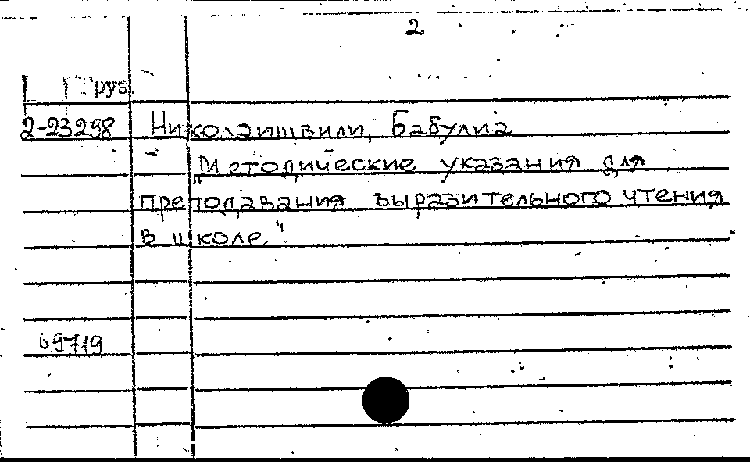 2
Груз.
2-23298 Николаишвили, Бабулиа
"Методические указания для
преподавания выразительного чтения
в школе"
69719